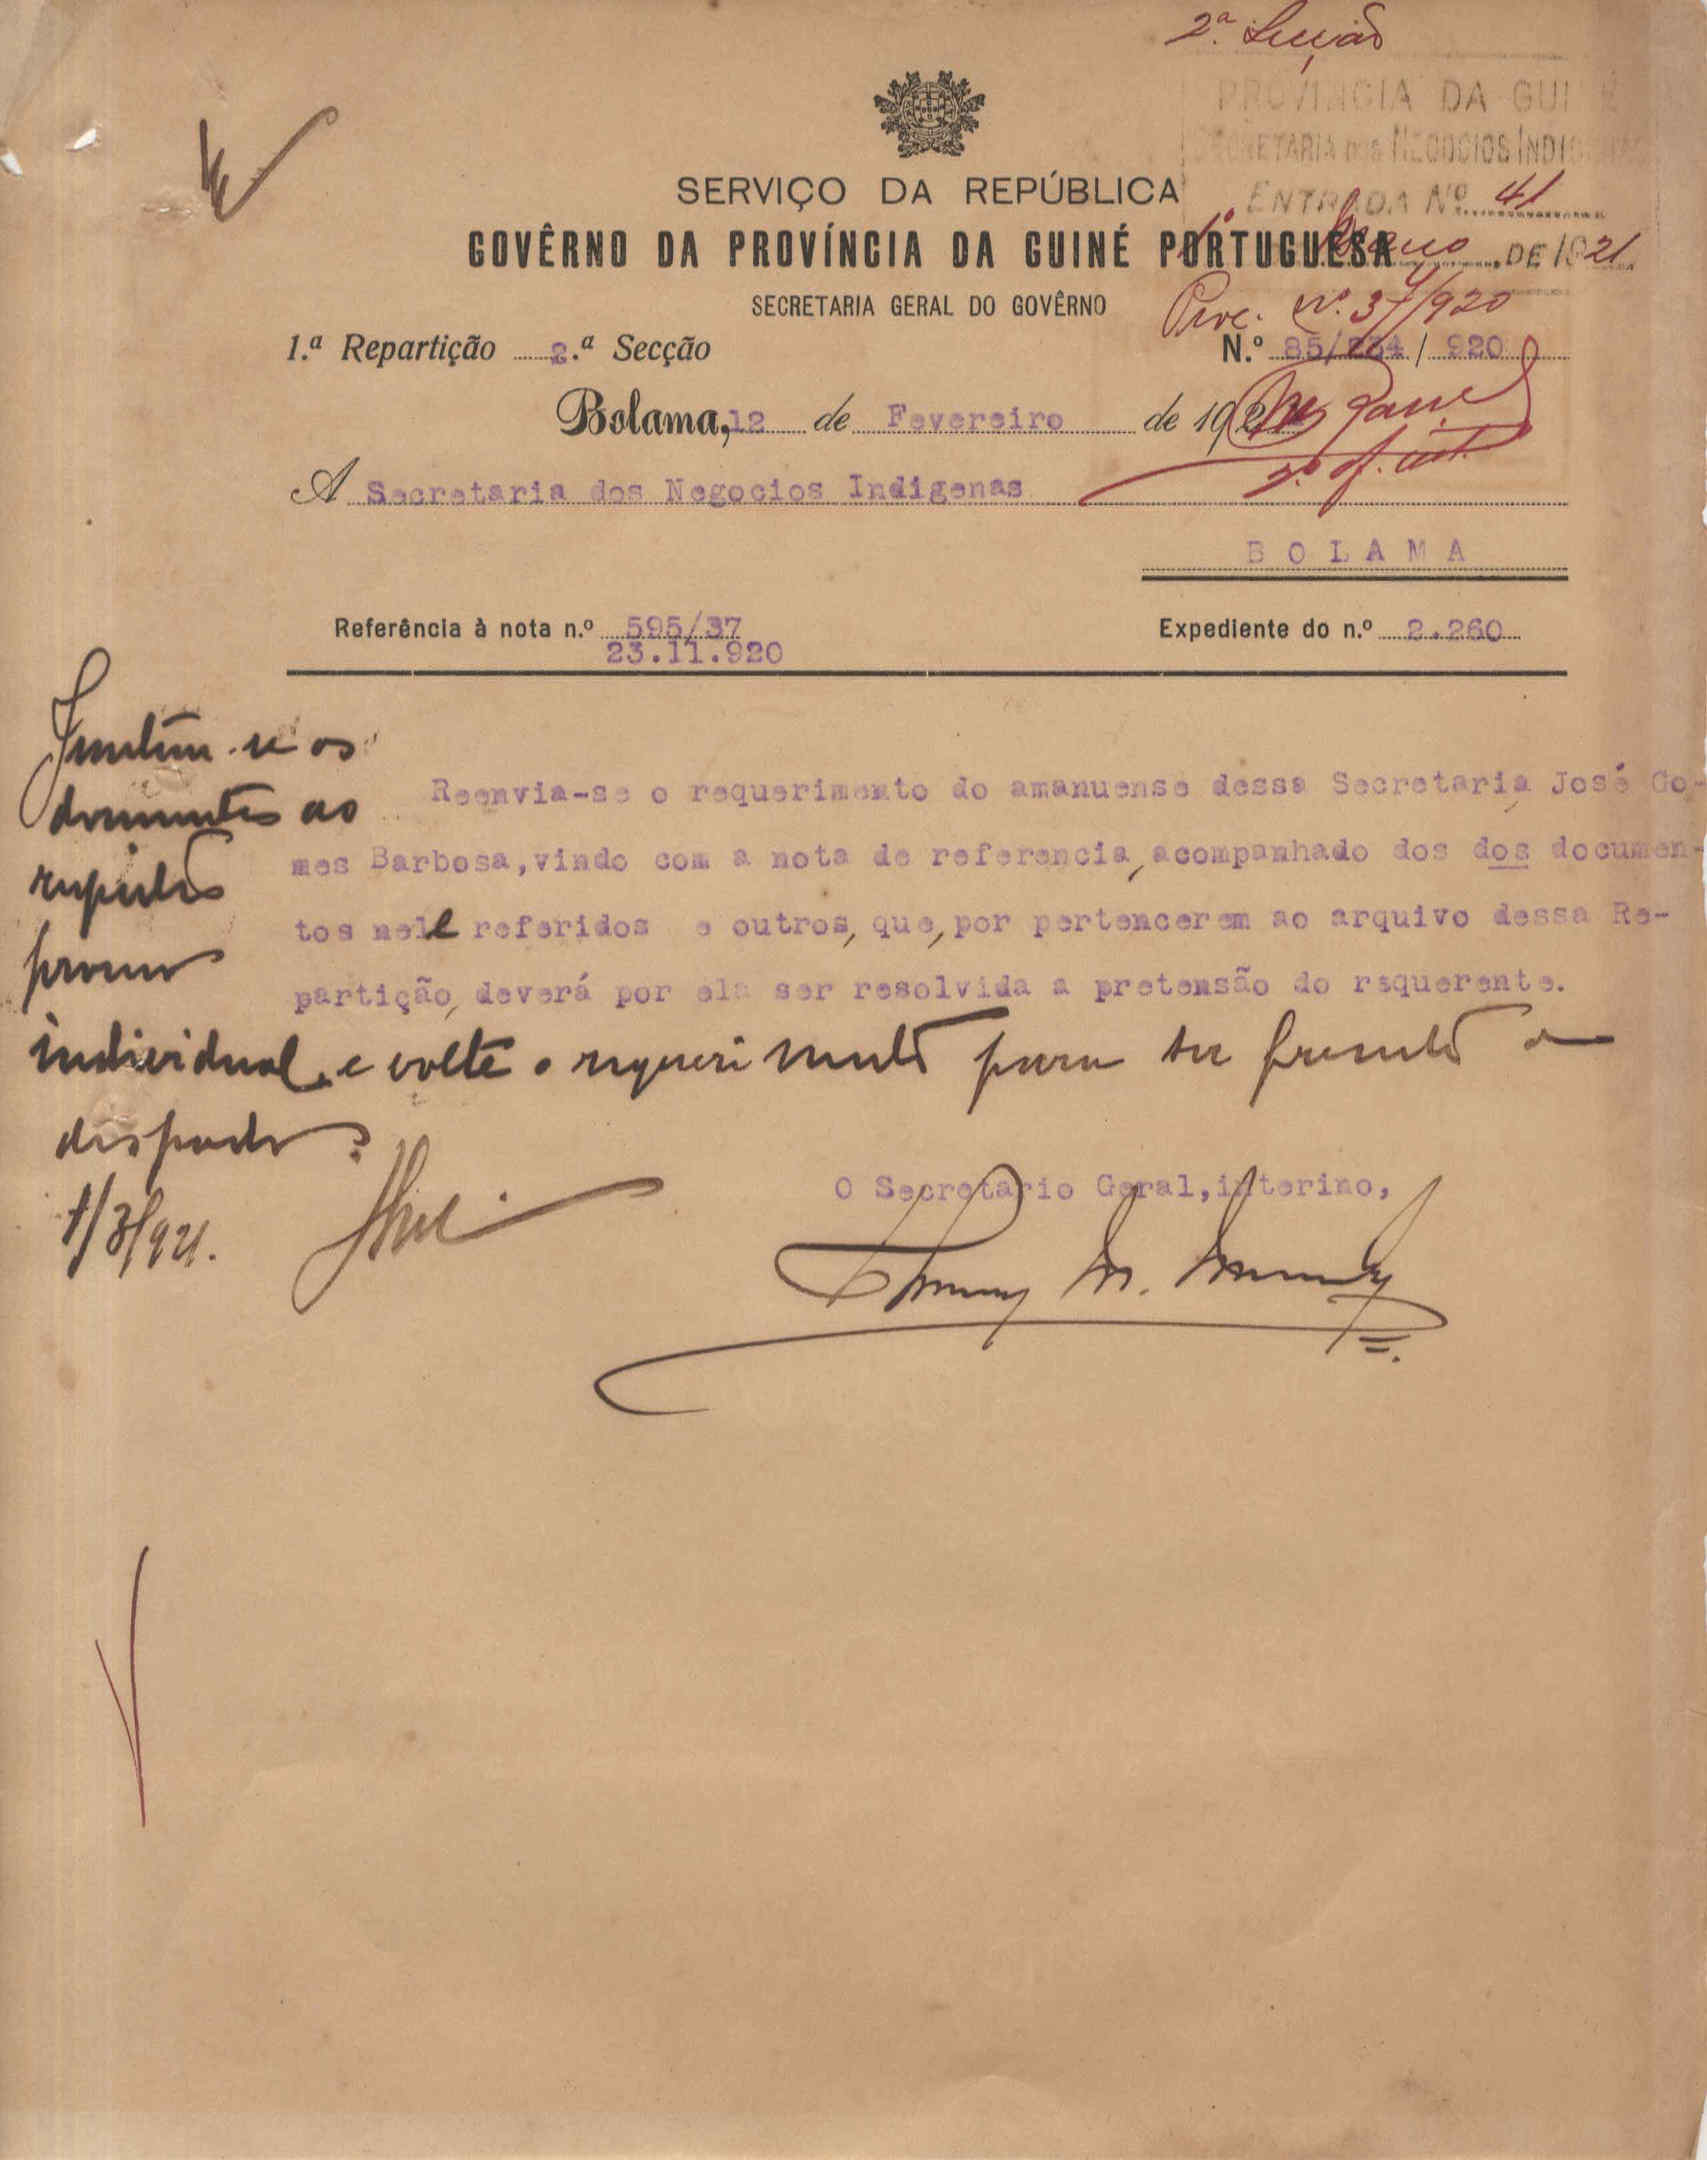 2.ª Secção
PROVINCIA DA GUINÉ
SECRETARIA DOS NEGOCIOS INDIGENAS
ENTRADA Nº 41
1º Março DE 1921
SERVIÇO DA REPÚBLICA
GOVÊRNO DA PROVÍNCIA DA GUINÉ PORTUGUESA
SECRETARIA GERAL DO GOVÊRNO
Proc. nº 37/920
1.ª Repartição 2.ª Secção
N.º 85/234 / 920
Bolama, 12 de Fevereiro de 192
2.º of. int.
A Secretaria dos Negocios Indigenas
BOLAMA
Referência à nota n.º 595/37
23.11.920
Expediente do n.º 2.260
Reenvia-se o requerimento do amanuense dessa Secretaria José Go-
mes Barbosa,vindo com a nota de referencia, acompanhado dos dos documen-
tos nele referidos e outros, que, por pertencerem ao arquivo dessa Re-
partição, deverá por ela ser resolvida a pretensão do requerente.
Juntem-se os
documentos ao
respectivo
processo
individual, e volte o requerimento para ser presente a
despacho.
1/3/921.
O Secretario Geral,interino,